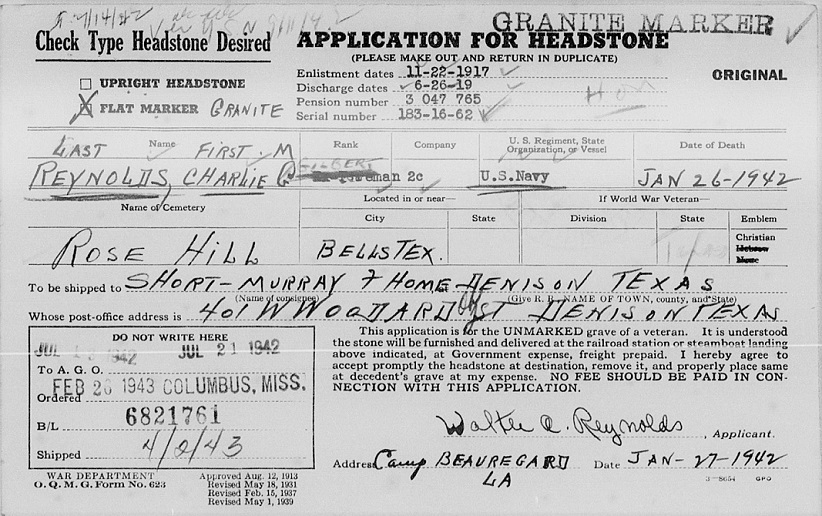 7/14/42
GRANITE MARKER
Check Type Headstone Desired
UPRIGHT HEADSTONE
X FLAT MARKER GRANITE
APPLICATION FOR HEADSTONE
(PLEASE MAKE OUT AND RETURN IN DUPLICATE)
Enlistment dates 11-22-1917
Discharge dates 6-26-19
Pension number 3 047 765
Serial number 183-16-62
ORIGINAL
LAST Name FIRST M
Rank
Company
U. S. Regiment, State Organization, or Vessel
Date of Death
REYNOLDS, CHARLIE G
GILBERT
man 2c
U.S.Navy
JAN 26-1942
Name of Cemetery
Located in or near—
City
State
If World War Veteran—
Division
State
Emblem
Christian
Hebrew
None
ROSE HILL
BELLS TEX.
To be shipped to SHORT-MURRAY F HOME DENISON TEXAS
(Name of consignee)
(Give R. R. NAME OF TOWN, county, and State)
Whose post-office address is 401 W WOODARD ST DENISON TEXAS
DO NOT WRITE HERE
JUL 1942 JUL 21 1942
To A. G. O.
FEB 26 1943 COLUMBUS, MISS.
Ordered
B/L 6821761
Shipped 4/2/43
This application is for the UNMARKED grave of a veteran. It is understood
the stone will be furnished and delivered at the railroad station or steamboat landing
above indicated, at Government expense, freight prepaid. I hereby agree to
accept promptly the headstone at destination, remove it, and properly place same
at decedent's grave at my expense. NO FEE SHOULD BE PAID IN CON-
NECTION WITH THIS APPLICATION.
Walter A. Reynolds, Applicant.
Address Camp BEAUREGARD Date JAN-27-1942
LA
WAR DEPARTMENT
O. Q. M. G. Form No. 623
Approved Aug. 12, 1913
Revised May 18, 1931
Revised Feb. 15, 1937
Revised May 1, 1939
3—8654 GPO